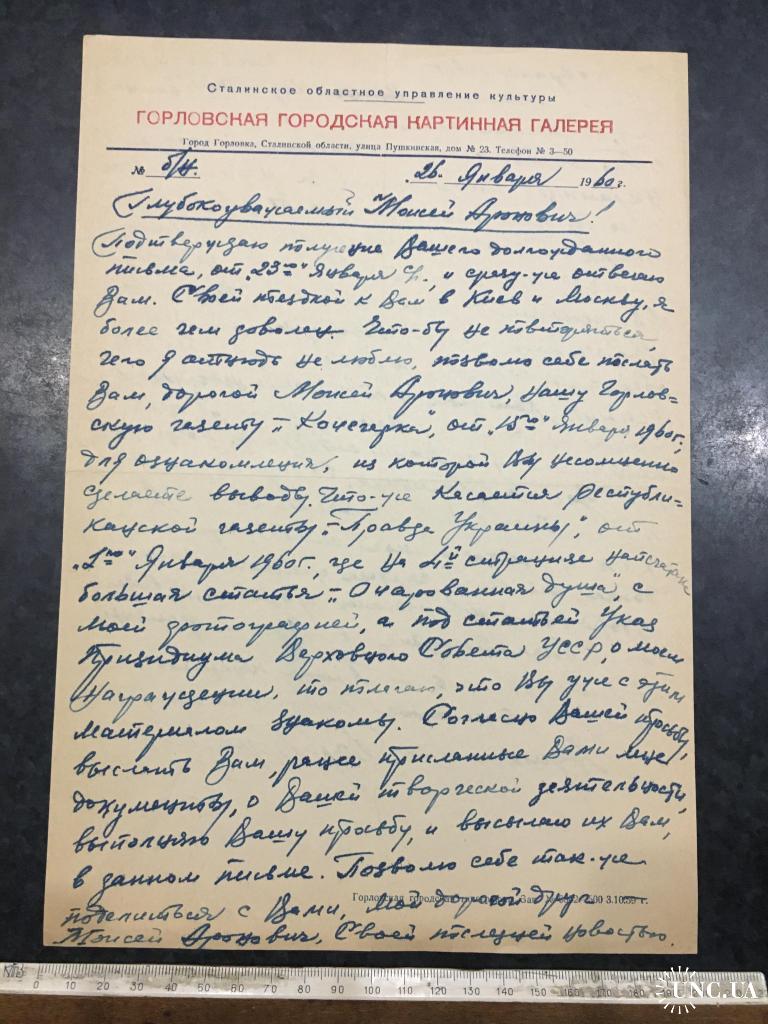 Сталинское областное управление культуры
ГОРЛОВСКАЯ ГОРОДСКАЯ КАРТИННАЯ ГАЛЕРЕЯ
Город Горловка, Сталинской области, улица Пушкинская, дом № 23. Телефон № 3—50
№ б/н. „26„ Января 1960 г.
Глубокоуважаемый Моисей Аронович!
Подтверждаю получение Вашего долгожданного
письма, от „23го" Января с/г., и сразу-же отвечаю
Вам. Своей поездкой к Вам в Киев и Москву, я
более чем доволен. Что-бы не повторяться,
чего я отнюдь не люблю, позволю себе послать
Вам, дорогой Моисей Аронович, нашу Горлов=
скую газету „Кочегарка", от „15го" Января 1960 г,
для ознакомления, из которой Вы несомненно
сделаете выводы. Что-же касается Республи-
канской газеты „Правда Украины", от
„1го" Января 1960 г, где на 4й странице напечатана
большая статья „Очарованная душа", с
моей фотографией, а под статьей Указ
Призидиума Верховного Совета УССР, о моем
награждении, то полагаю, что Вы уже с этим
материалом знакомы. Согласно Вашей просьбы,
выслать Вам, ранее присланные Вами мне
документы, о Вашей творческой деятельности,
выполняю Вашу прозьбу, и высылаю их Вам,
в данном письме. Позволю себе так-же
Горловская городская 3.10.59 г.
поделиться с Вами, мой дорогой друг
Моисей Аронович, Своей последней новостью.
0 10 20 30 40 50 60 70 80 90 100 110 120 130 140 150 160 170 180 190 200
UNC.UA